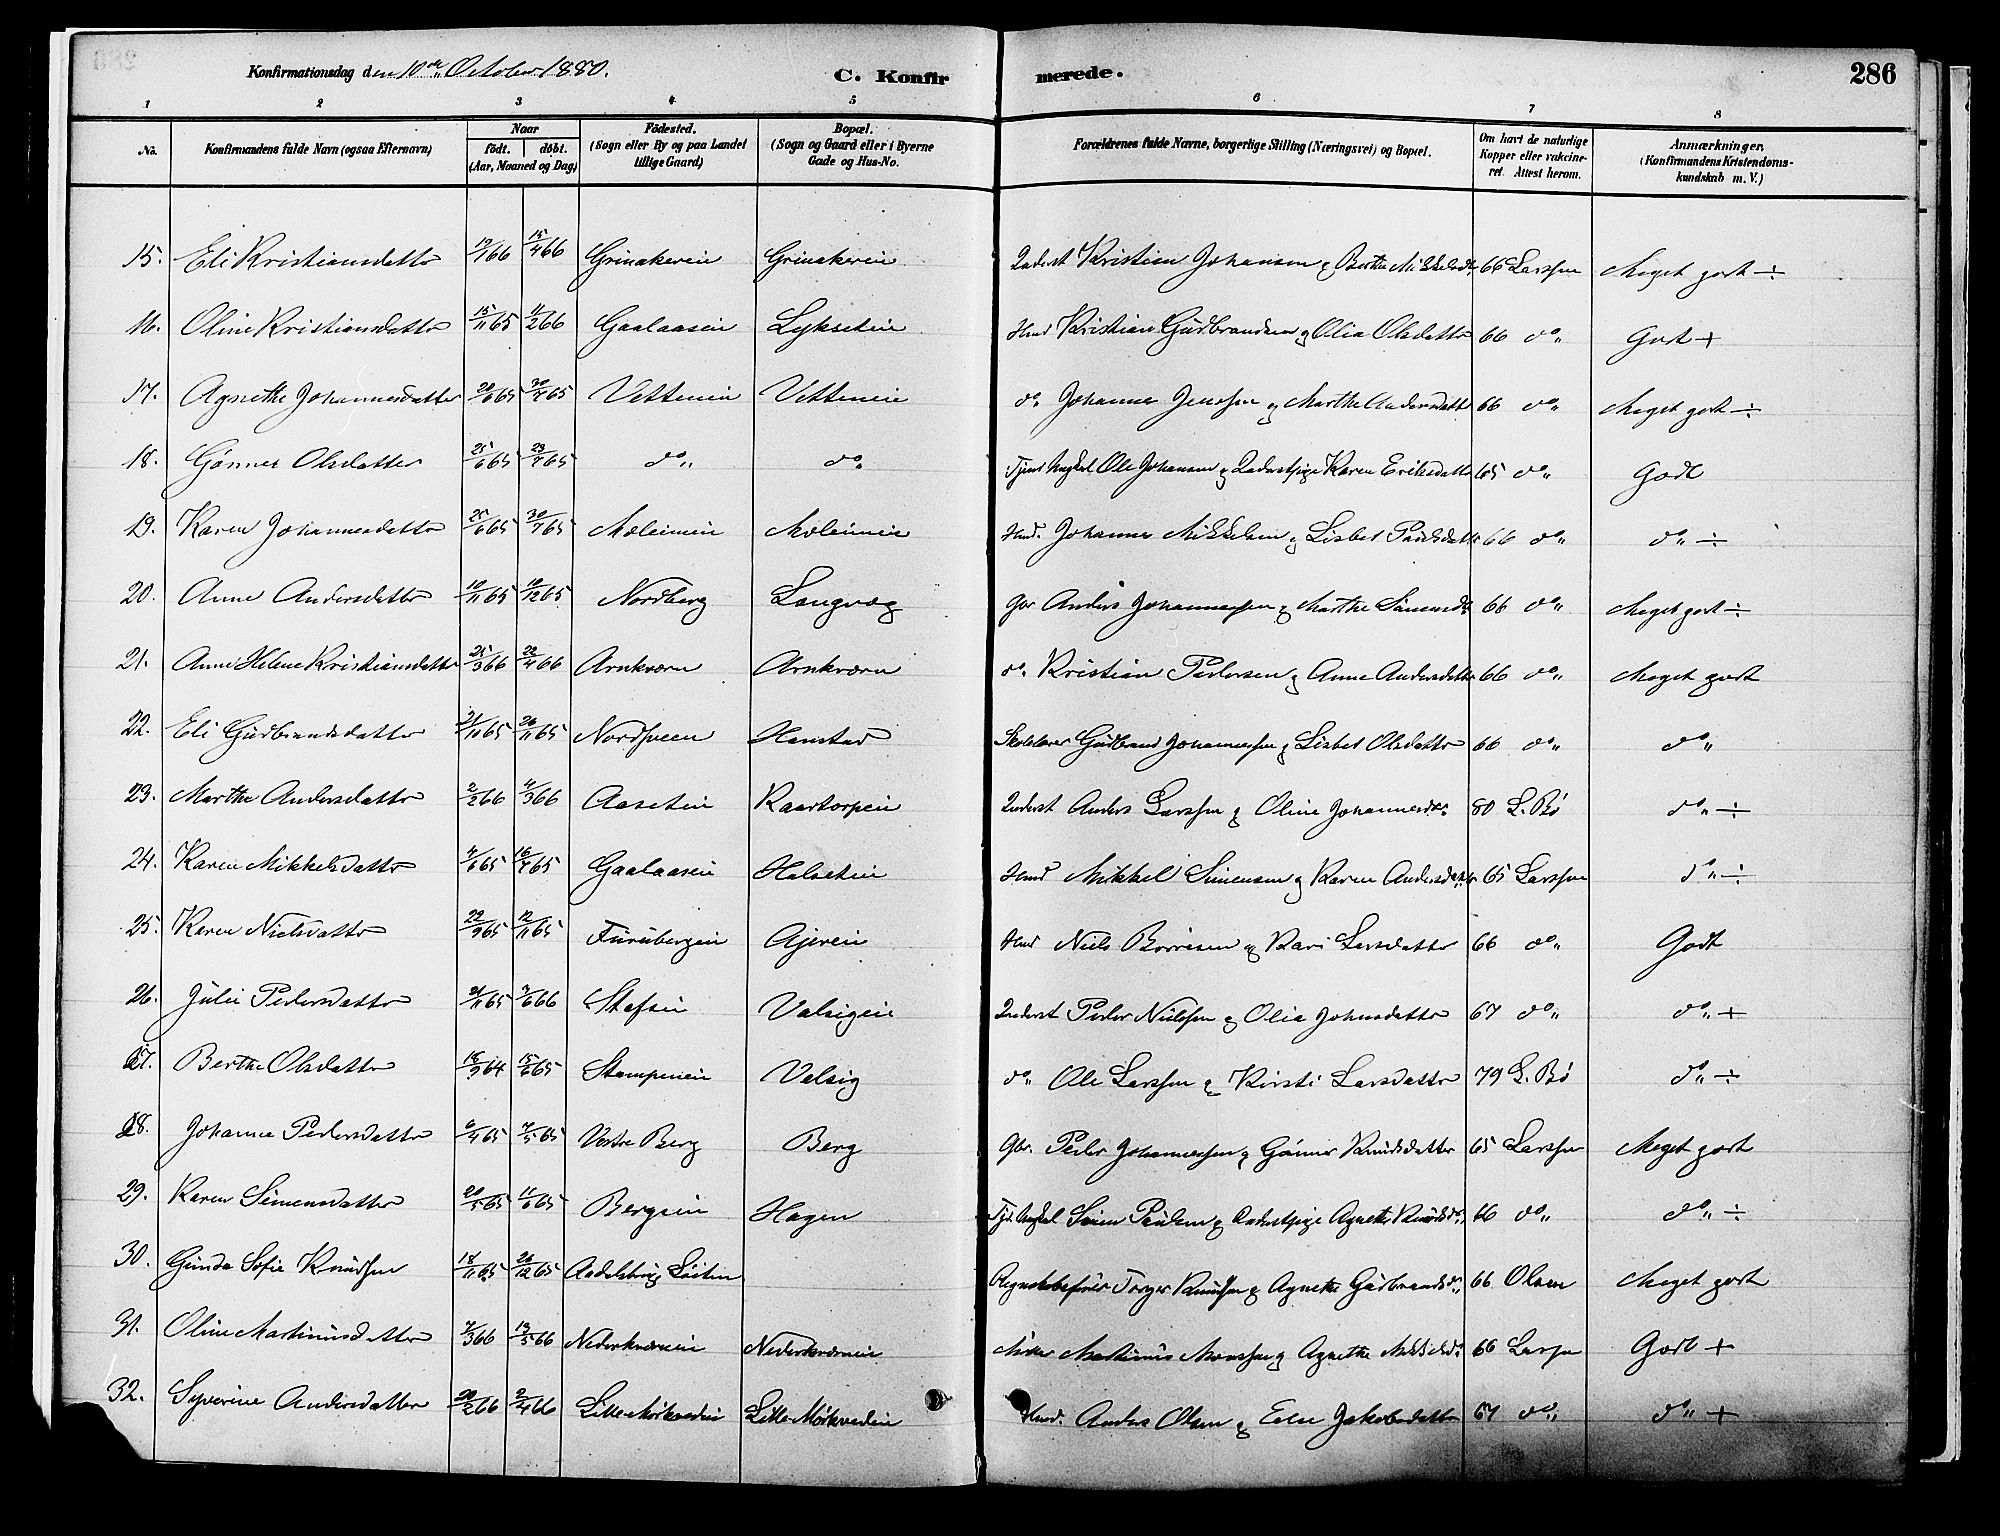 Konfirmationsdag den 10de October 1880. C. Konfir merede. 286
1 2 3 4 5 6 7 8
No. Konfirmandens fulde Navn (ogsaa Efternavn) Naar födt. döbt. (Aar, Maaned og Dag) Födested. (Sogn eller By og paa Landet tillige Gaard) Bopæl. (Sogn og Gaard eller i Byerne Gade og Hus-No. Forældrenes fulde Navne, borgerlige Stilling (Næringsvei) og Bopæl. Om havt de naturlige Kopper eller vakcineret. Attest herom. Anmærkninger. (Konfirmandens Kristendomskundskab m. V.)
15. Eli Kristiansdatter 15/4 66 Grinakereie Grinakereie Inderst Kristian Johansen & Berthe Mikkelsdt 66 Larssen Meget godt ÷
16. Oline Kristiansdatter 15/11 65 11/2 66 Gaalaaseie Lykseteie Hmd Kristian Gudbrandsen & Olia Olsdatter 66 do„ Godt +
17. Agnethe Johannesdatter 20/6 65 30/7 65 Vetteneie Vetteneie do„ Johannes Jenssen & Marthe Andersdatt 66 do„ Meget godt ÷
18. Gønner Olsdatter 25/6 65 23/7 65 do„ do„ Ole Johansen & Karen Eriksdatter 65 do„ Godt
19. Karen Johannesdatter 25/6 65 30/7 65 Mæleimeie Mæleimeie Hmd. Johannes Mikkelsen & Lisbet Paulsdatt 66 do„ do„ ÷
20. Anne Andersdatter 10/11 65 10/12 65 Nordberg Langvæg Gbr Anders Johannessen & Marthe Simensdt 66 do„ Meget godt ÷
21. Anne Helene Kristiansdatter 25/3 66 22/4 66 Arnkværn Arnkværn do„ Kristian Pedersen & Anne Andersdatter 66 do„ Meget godt
22. Eli Gudbrandsdatter 21/10 65 26/11 65 Nordsveen Hamstad Skolelærer Gudbrand Johannessen & Lisbet Olsdatter 66 do„ do„
23. Marthe Andersdatter 2/2 66 4/3 66 Aaseteie Kaartorpeie Inderst Anders Larssen & Oline Johannesdtr 80 L. Bø do„ ÷
24. Karen Mikkelsdatter 4/6 65 16/7 65 Gaalaaseie Halseteie Hmd Mikkel Simensen & Karen Andersdatter 65 Larssen do„ ÷
25. Karen Nielsdatter 22/9 65 12/11 65 Furubergeie Ajereie Hmd Niels Børresen & Kari Larsdatter 66 do„ Godt
26. Julie Pedersdatter 21/11 65 Stafsei Valsigeie Inderst Peder Nielsen & Olia Johnsdatter 67 do„ do„ +
27. Berthe Olsdatter 18/9 64 15/6 65 Stampeneie Valsig do„ Ole Larssen & Kirsti Larsdatter 79 L. Bø do„ ÷
28. Johanne Pedersdatter 6/4 65 7/5 65 Vestre Berg Berg Gbr. Peder Johannessen & Gønner Knudsdatter 65 Larssen Meget godt
29. Karen Simensdatter 20/5 65 11/6 65 Bergseie Hagen Simen Paulsen & Agnethe Knudsdtr 66 do„ do„ ÷
30. Gunda Sofie Knudsen 18/11 65 26/12 65 Aadalsbrug Løiten Torger Knudsen & Agnethe Gudbrandsdtr 66 Olsen Meget godt
31. Oline Martinusdatter 7/3 66 13/5 66 Nederkværneie Nederkværneie Martinus Monssen & Agnethe Mikkelsdtr 66 Larssen Godt +
32. Syverine Andersdatter 20/2 66 2/4 66 Lille Mørkvedeie Lille Mørkvedeie Hmd. Anders Olsen & Eline Jakobsdatter 67 do„ do„ +